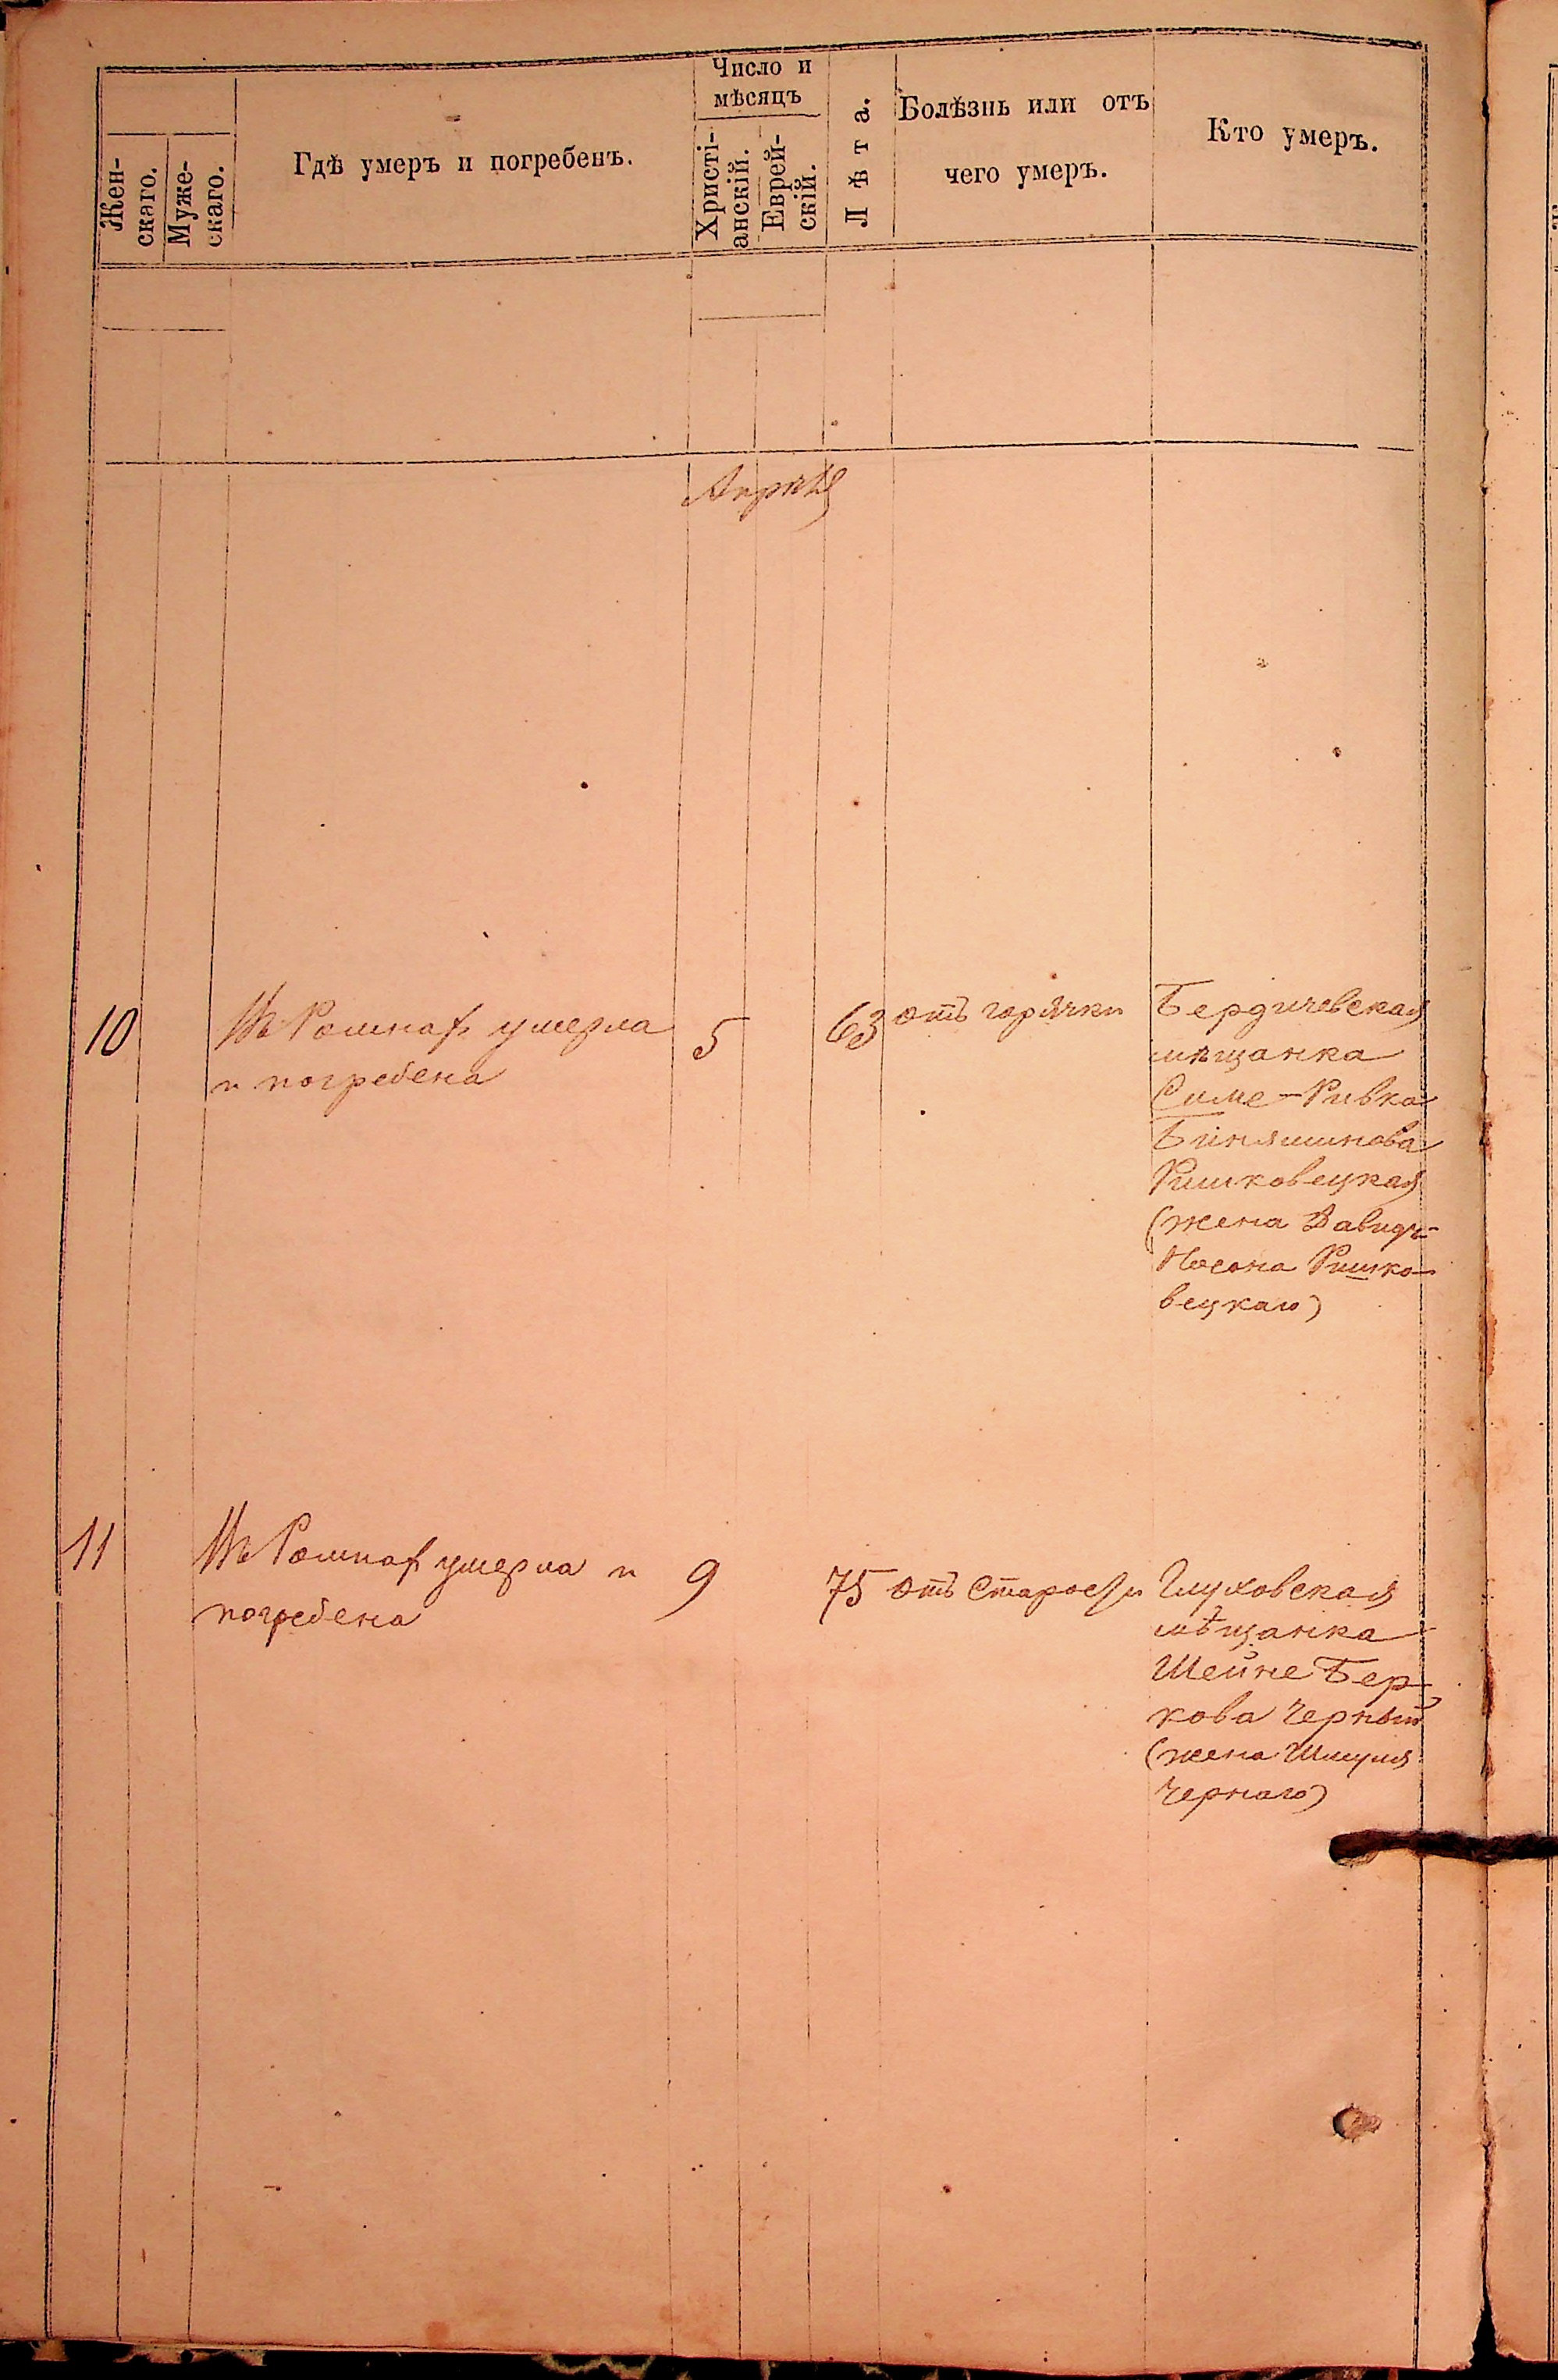 Жен-
скаго.
Муже-
скаго.
Гдѣ умеръ и погребенъ.
Число и
мѣсяцъ
Христі-
анскій.
Еврей-
скій.
Лѣта.
Болѣзнь или отъ
чего умеръ.
Кто умеръ.
Апрѣль
10
Въ Ромнах умерла
и погребена
5
63
отъ горячки
Бердичевская
мѣщанка
Симе-Ривка
Биняминова
Ришковецкая
(жена Давидъ-
Носона Ришко-
вецкаго)
11
Въ Ромнах умерла и
погребена
9
75
отъ старости
Глуховская
мѣщанка
Шейне Бер-
кова Черный
(жена Шмуля
Чернаго)